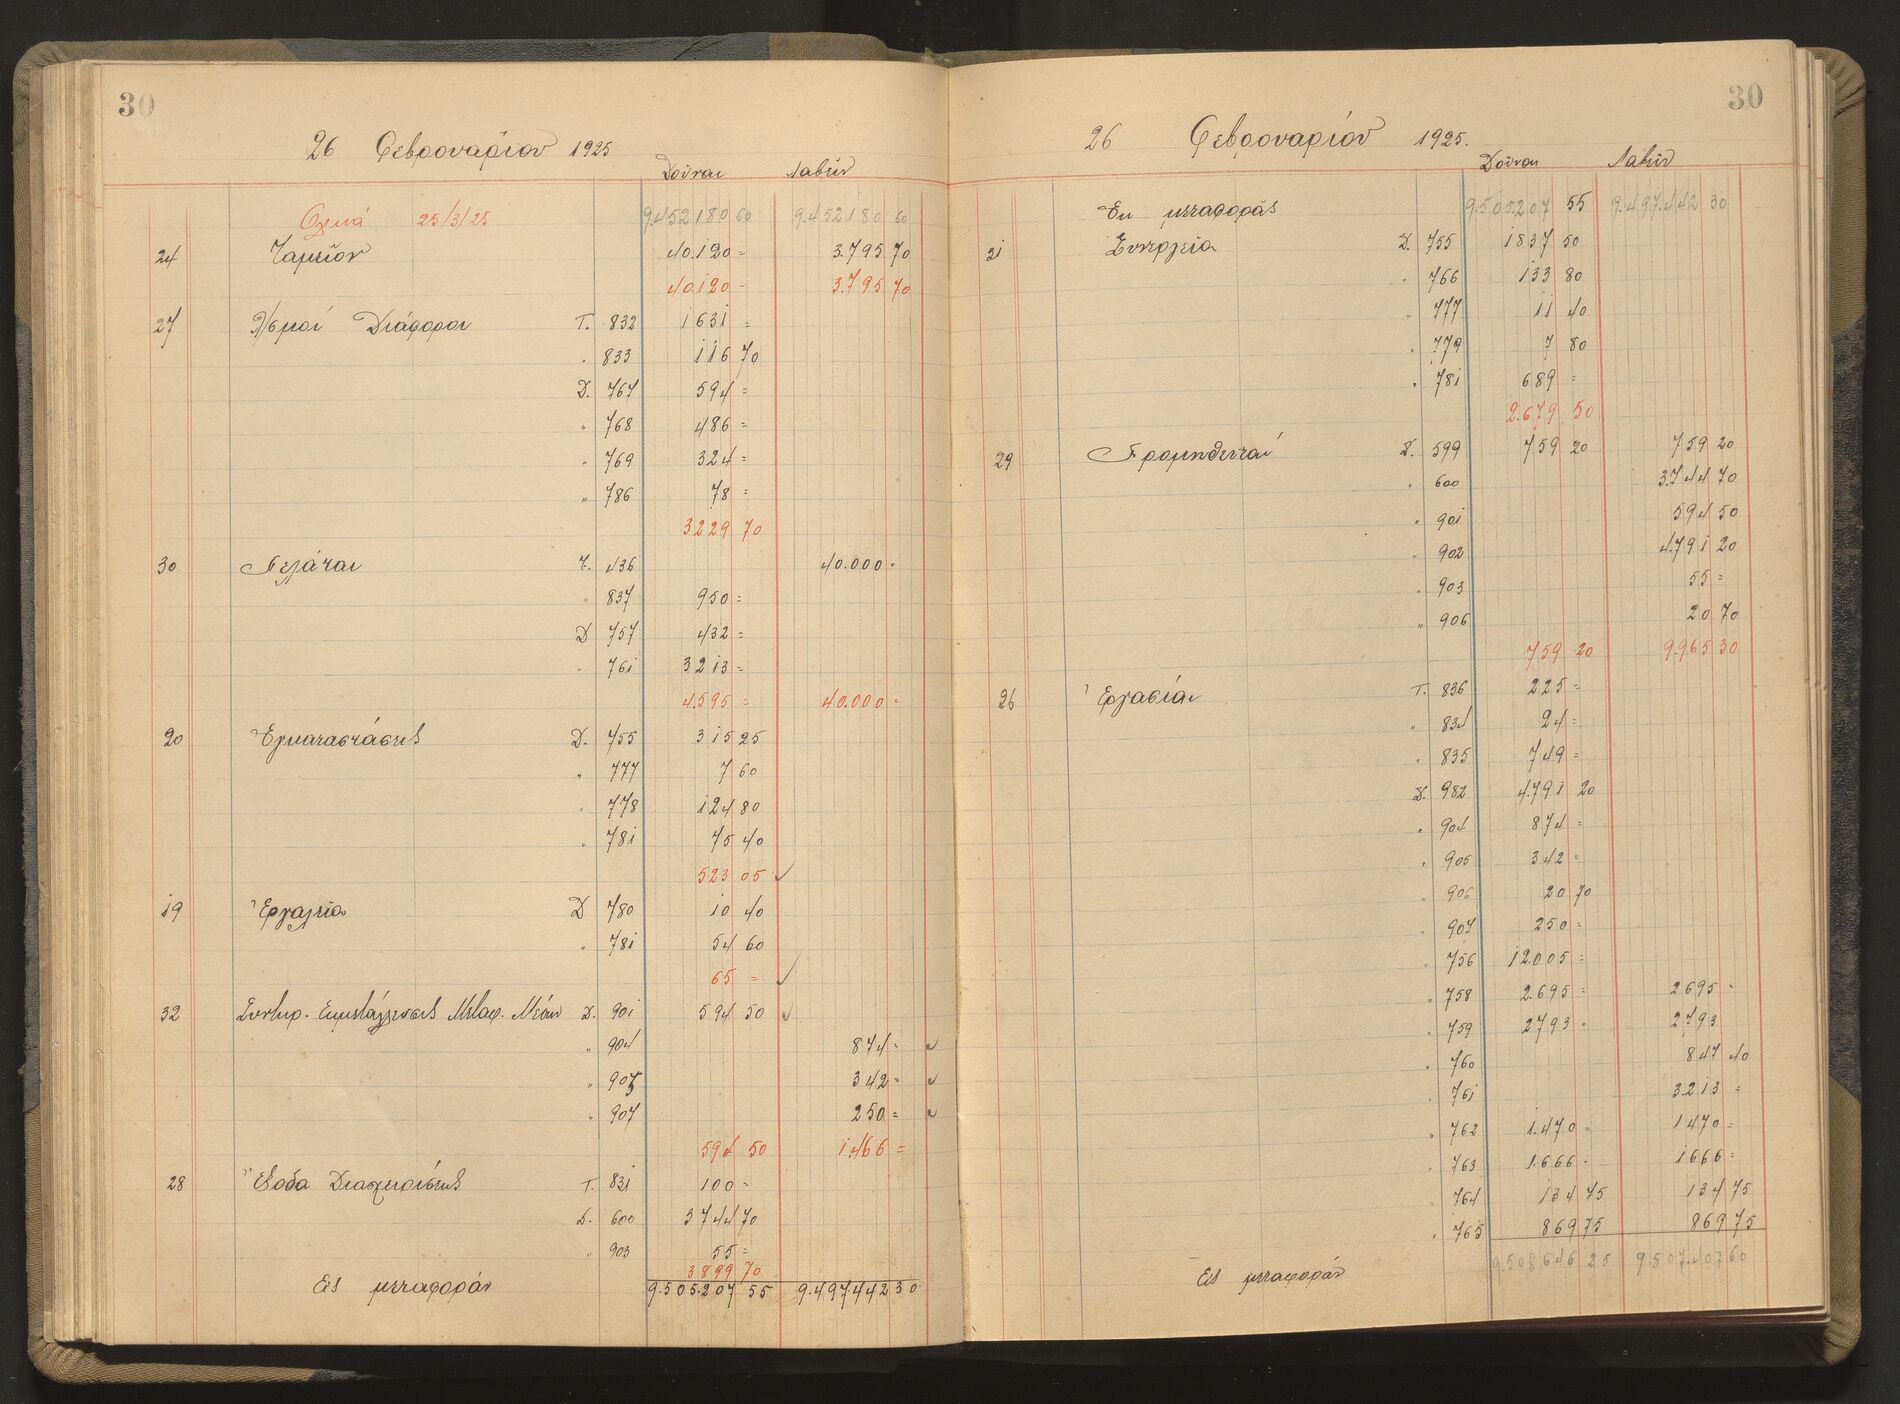 30
26 Φεβρουαρίου 1925
Δοῦναι Λαβεῖν
Ολικά 25/3/25 9.452180 60 9.452180 60
24 Ταμεῖον 40.120 = 3.795 70
40.120 - 3.795 70
27 Λ/σμοί Διάφοροι Τ. 832 1631 =
" 833 116 70
Δ. 767 594 =
" 768 486 =
" 769 324 =
" 786 78 =
3229 70
30 Πελάται Τ. 436 40.000 -
" 837 950 =
Δ 757 432 =
" 761 3213 =
4.595 = 40.000 -
20 Εγκαταστάσεις Δ. 755 315 25
" 777 7 60
" 778 124 80
" 781 75 40
523 05 ✓
19 Εργαλεία Δ 780 10 40
" 781 54 60
65 = ✓
32 Συντηρ. Εκμεταλλεύσεις Μεταφ. Μέσων Δ. 901 594 50 ✓
" 904 874 = ✓
" 905 342 = ✓
" 907 250 = ✓
594 50 1.466 =
28 Έξοδα Διαχειρίσεως Τ. 831 100 -
Δ. 600 3744 70
" 903 55 =
3899 70
Εις μεταφοράν 9.505.207 55 9.497.442 30
30
26 Φεβρουαρίου 1925.
Δοῦναι Λαβεῖν
Εκ μεταφοράς 9.505.207 55 9.497.442 30
21 Συνεργεία Δ. 755 1837 50
" 766 133 80
" 777 11 40
" 779 7 80
" 781 689 =
2.679 50
29 Προμηθευταί Δ. 599 759 20 759 20
" 600 3744 70
" 901 594 50
" 902 4.791 20
" 903 55 =
" 906 20 70
759 20 9.965 30
26 Εργασίαι Τ. 836 225 =
" 834 24 =
" 835 749 =
Δ. 982 4.791 20
" 904 874 =
" 905 342 =
" 906 20 70
" 907 250 =
" 756 12.005 =
" 758 2.695 = 2695 -
" 759 2793 - 2793
" 760 847 40
" 761 3213 =
" 762 1.470 = 1470 =
" 763 1.666 - 1666 =
" 764 134 75 134 75
" 765 869 75 869 75
Εις μεταφοράν 9.508.646 25 9.507.407 60